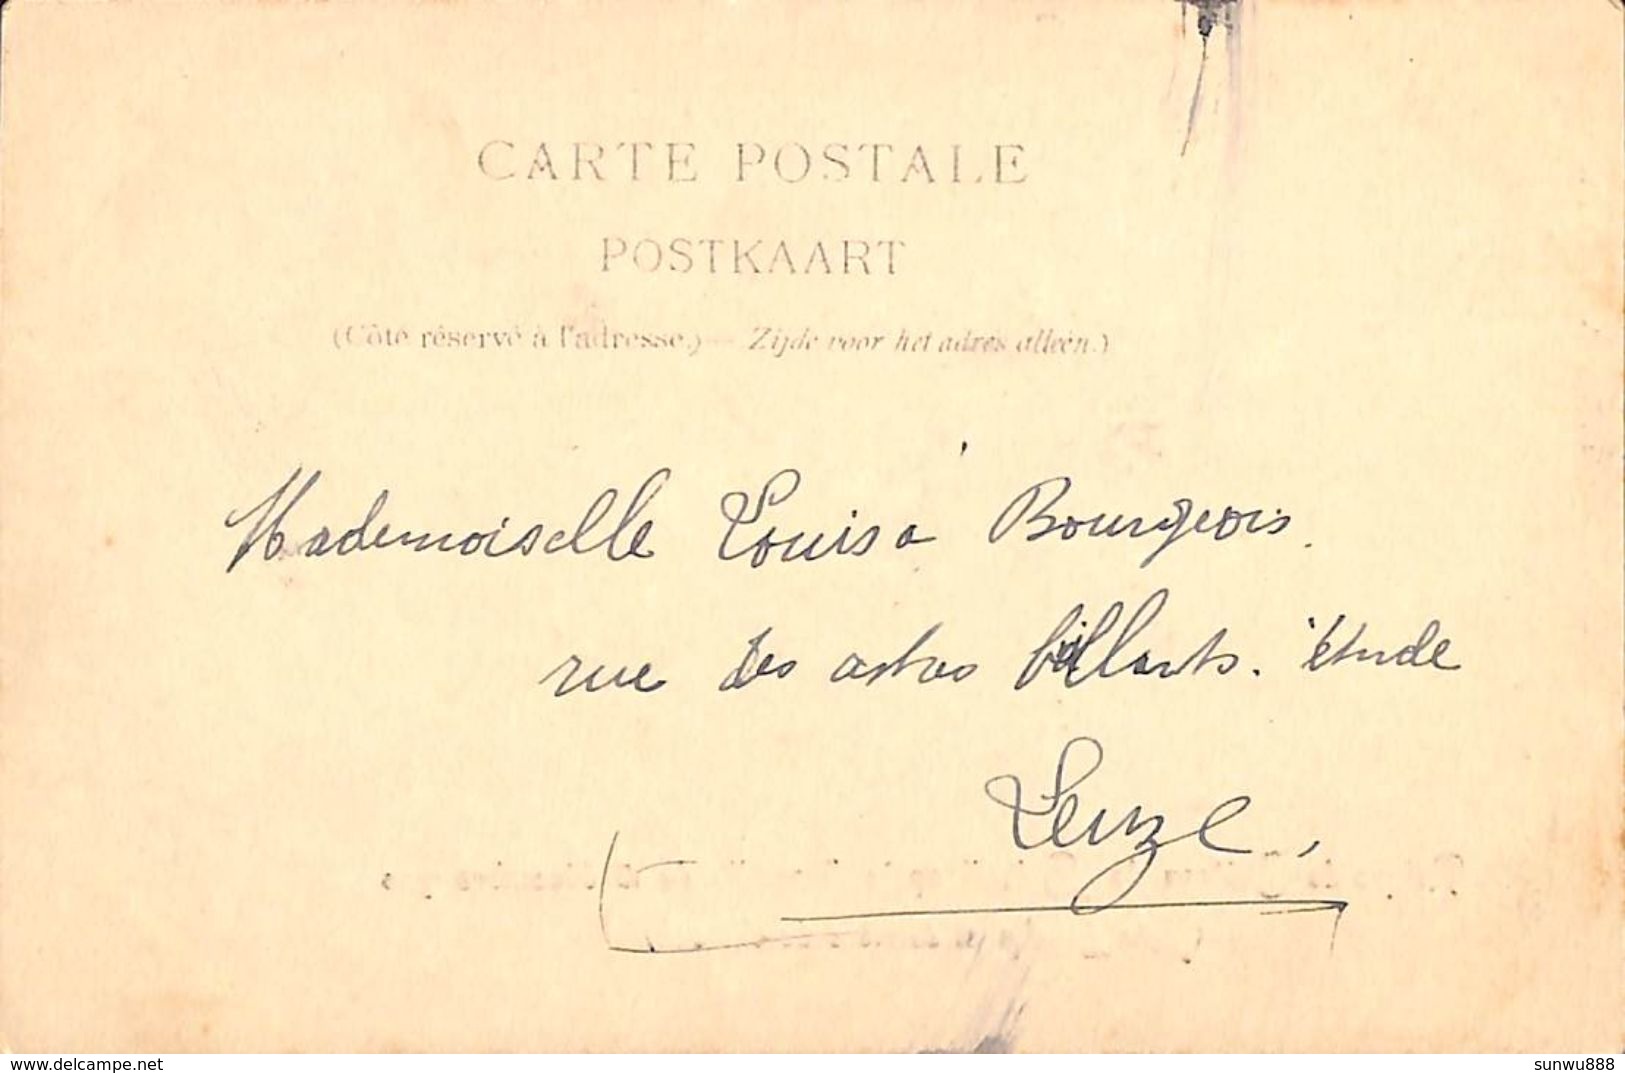 CARTE POSTALE
POSTKAART
(Côté réservé à l'adresse.) — Zijde voor het adres alleen.)
Mademoiselle Louisa Bourgeois.
rue des astres billants. étude
Leuze,
delcampe.net
sunwu888